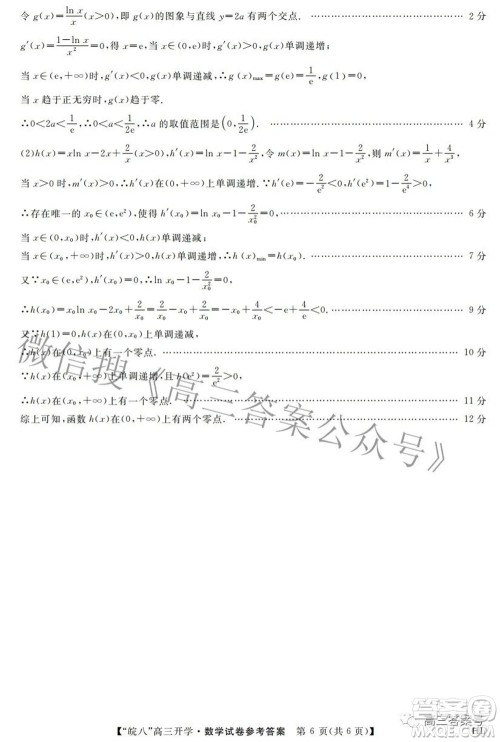 令 g(x)=ln x/x(x>0),即 g(x)的图象与直线 y=2a 有两个交点. 2 分
g′(x)=(1−ln x)/x²=0,得 x=e,当 x∈(0,e)时,g′(x)>0,g(x)单调递增;
当 x∈(e,+∞)时,g′(x)<0,g(x)单调递减,∴g(x)max=g(e)=1/e,g(1)=0,
当 x 趋于正无穷时,g(x)趋于零.
∴0<2a<1/e,∴0<a<1/2e,∴a 的取值范围是(0,1/2e). 4 分
(2)h(x)=xln x−2x+2/x(x>0),h′(x)=ln x−1−2/x²,令 m(x)=ln x−1−2/x²,则 m′(x)=1/x+4/x³,
当 x>0 时,m′(x)>0,∴h′(x)在(0,+∞)上单调递增.∵h′(e)=−2/e²<0,h′(e²)=1−2/e⁴>0,
∴存在唯一的 x₀∈(e,e²),使得 h′(x₀)=ln x₀−1−2/x₀²=0. 6 分
当 x∈(0,x₀)时,h′(x)<0,h(x)单调递减;
当 x∈(x₀,+∞)时,h′(x)>0,h(x)单调递增,∴h(x)min=h(x₀). 7 分
又∵h′(x₀)=0,∴ln x₀−1−2/x₀²=0,
∴h(x₀)=x₀ln x₀−2x₀+2/x₀=x₀+2/x₀−2x₀+2/x₀=−x₀+4/x₀<−e+4/e<0. 9 分
又∵h(1)=0,h(x)在(0,x₀)上单调递减,
∴h(x)在(0,x₀)上有一个零点. 10 分
∵h(x)在(x₀,+∞)上单调递增,且 h(e²)=2/e²>0,
∴h(x)在(x₀,+∞)上有一个零点. 11 分
综上可知,函数 h(x)在(0,+∞)上有两个零点. 12 分
微信搜《高三答案公众号》
【“皖八”高三开学·数学试卷参考答案 第 6 页(共 6 页)】
高三答案号